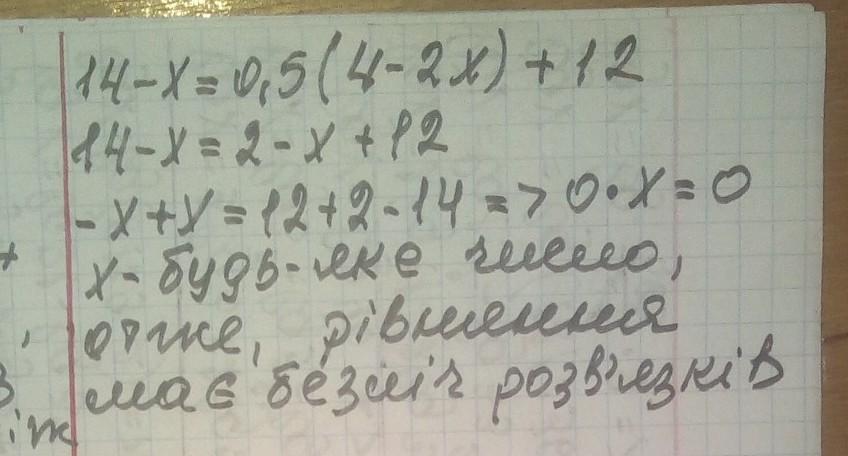 14-x=0,5(4-2x)+12
14-x=2-x+12
-x+x=12+2-14=>0·x=0
x-будь-яке число,
отже, рівняння
має безліч розв'язків